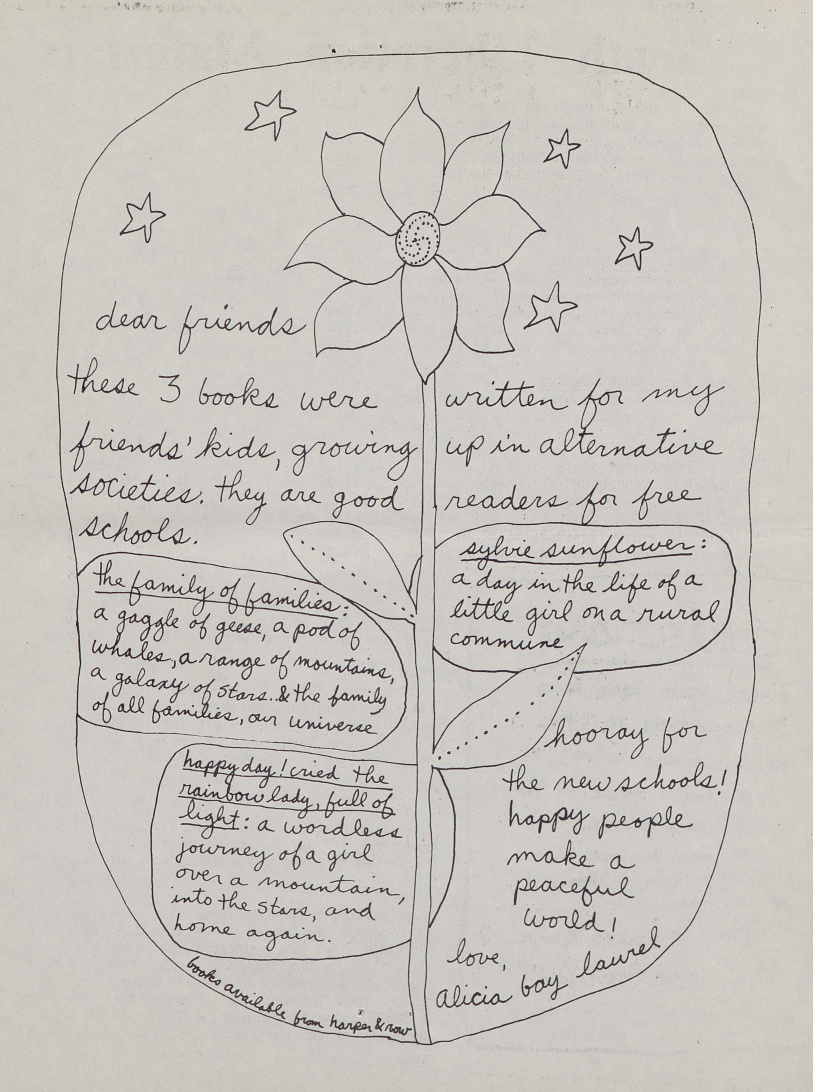 dear friends
these 3 books were written for my
friends' kids, growing up in alternative
societies. they are good readers for free
schools.
the family of families:
a gaggle of geese, a pod of
whales, a range of mountains,
a galaxy of stars..& the family
of all families, our universe
sylvie sunflower:
a day in the life of a
little girl on a rural
commune
happy day! cried the
rainbow lady, full of
light: a wordless
journey of a girl
over a mountain,
into the stars, and
home again.
hooray for
the new schools!
happy people
make a
peaceful
world!
love,
alicia bay laurel
books available from harper & row